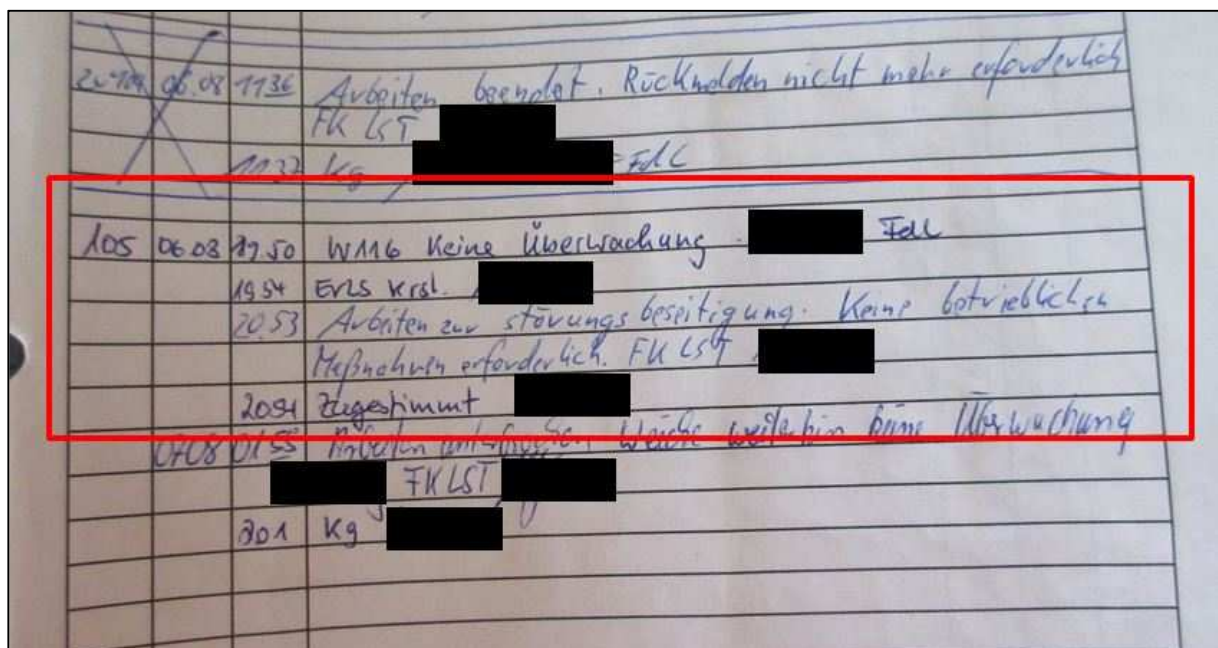 zu 104 06.08 1136 Arbeiten beendet. Rückmelden nicht mehr erforderlich
FK LST
1137 Kg, FdL
105 06.08 19.50 W116 Keine Überwachung. FdL
1954 EvLS Krsl.
20.53 Arbeiten zur störungsbeseitigung. Keine betrieblichen
Maßnahmen erforderlich. FK LST
2054 Zugestimmt
07.08 0155 Arbeiten unterbrochen, Weiche weiterhin keine Überwachung
FK LST
201 Kg